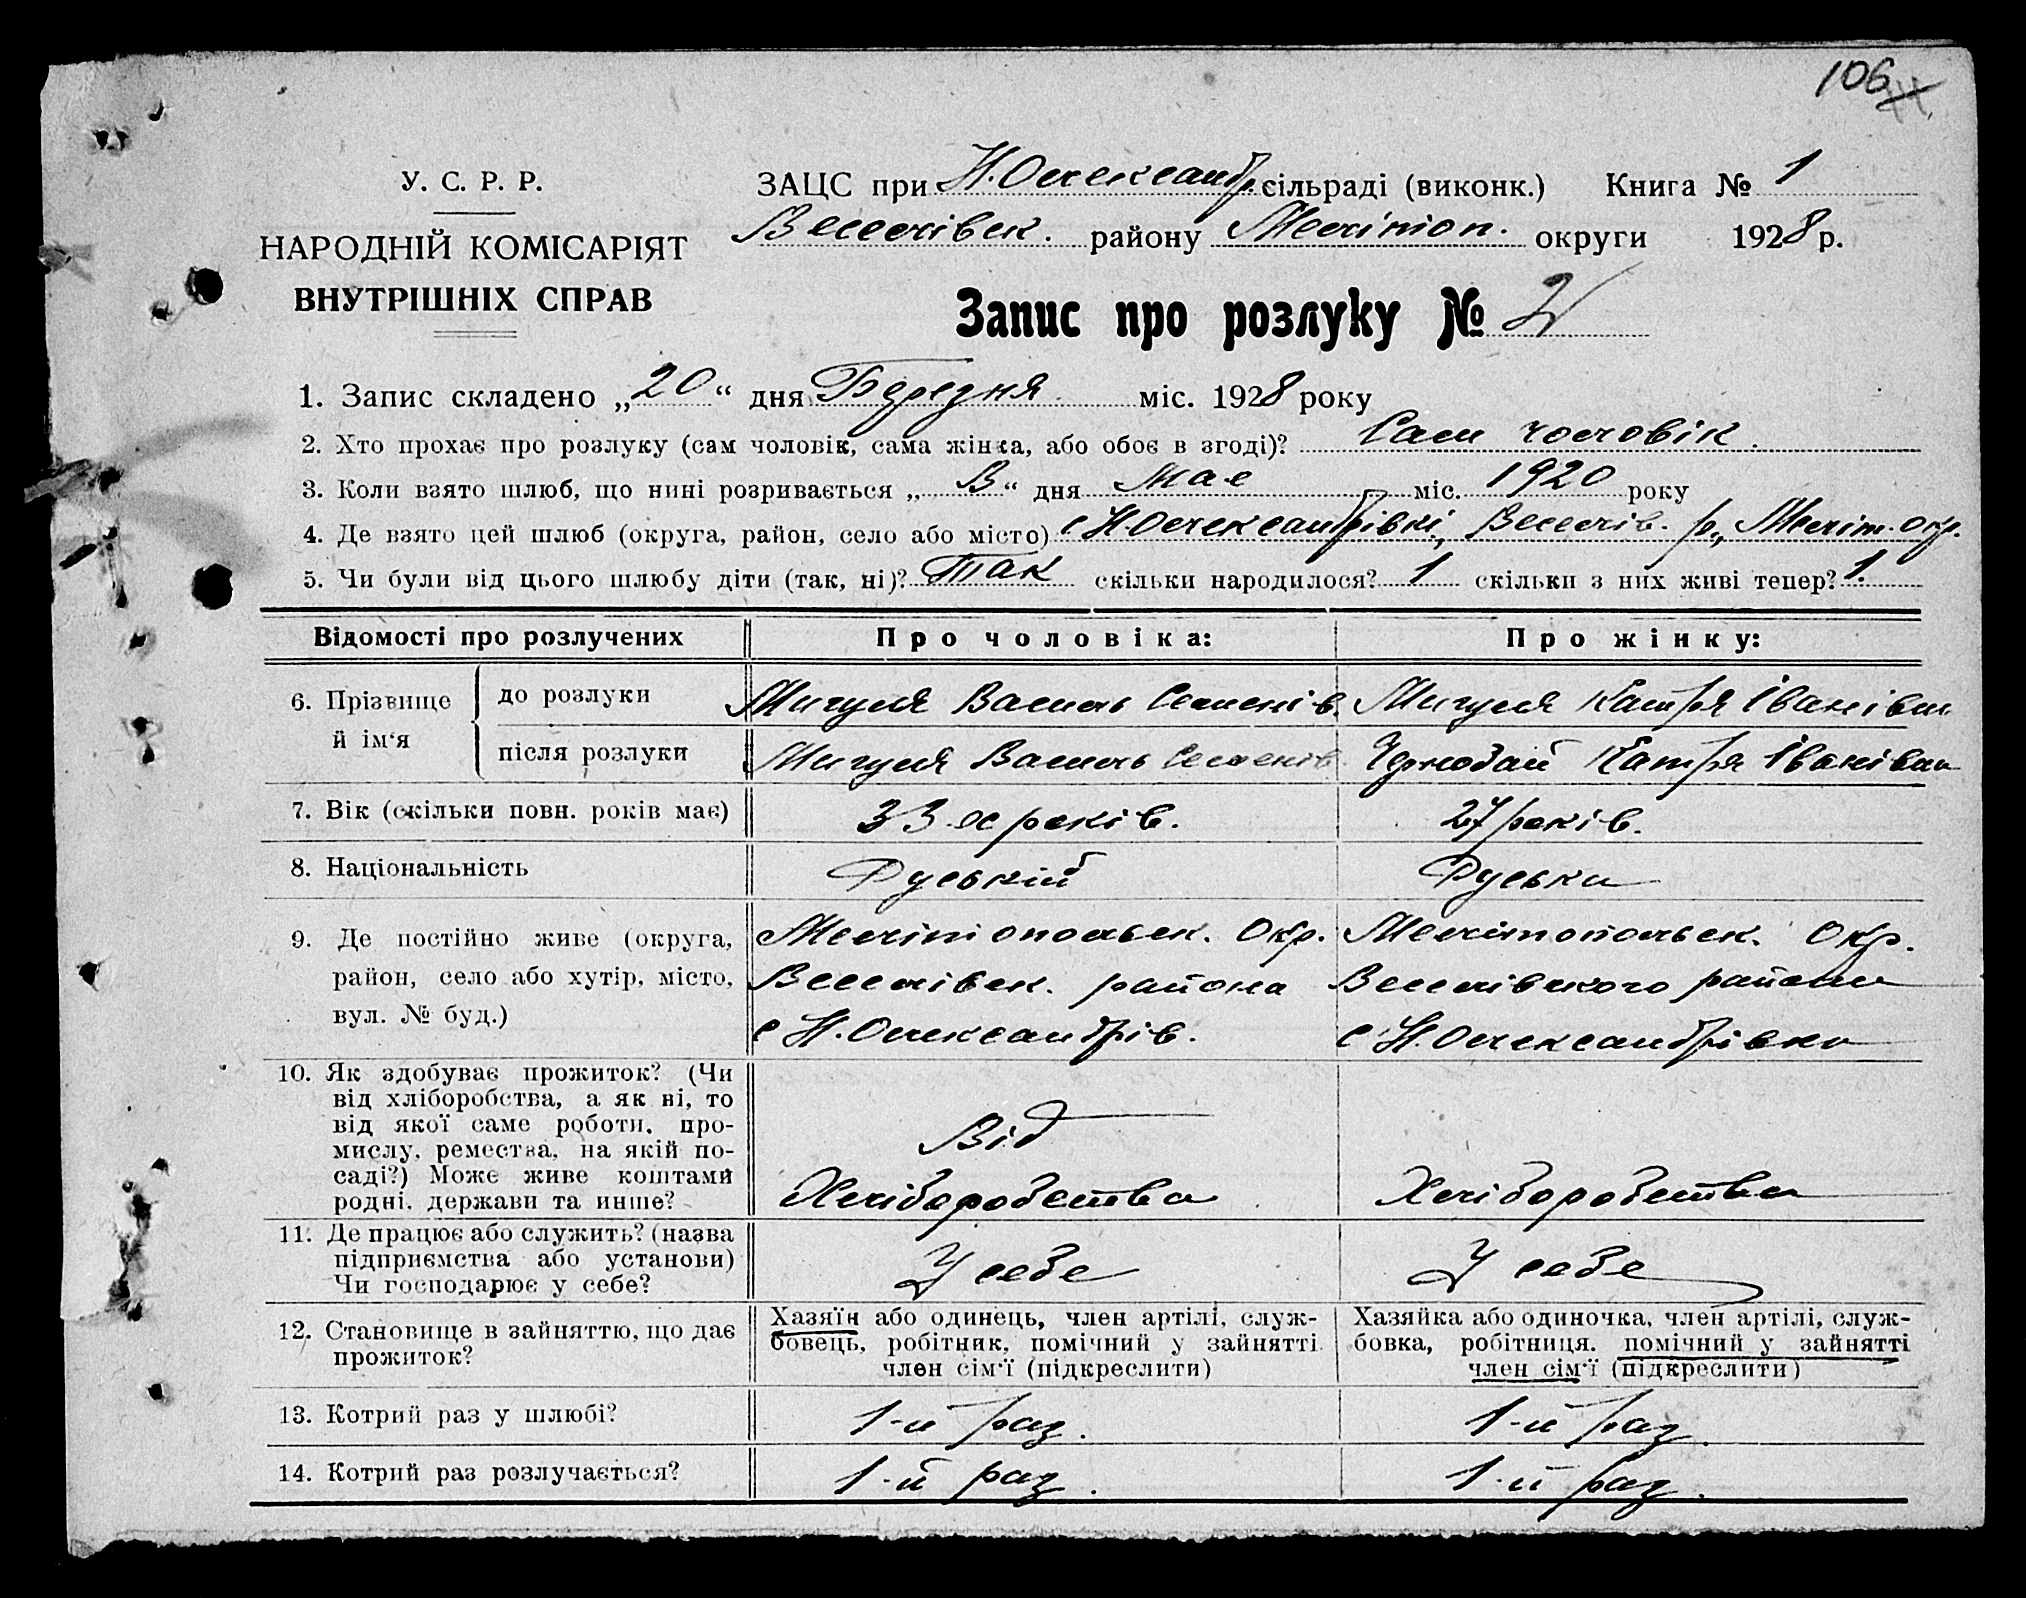 106
У. С. Р. Р.
НАРОДНІЙ КОМІСАРІЯТ
ВНУТРІШНІХ СПРАВ
ЗАЦС при Н. Олександр. сільраді (виконк.) Книга № 1
Веселівск. району Мелітоп. округи 1928 р.
Запис про розлуку № 2
1. Запис складено „20“ дня Березня міс. 1928 року
2. Хто прохає про розлуку (сам чоловік, сама жінка, або обоє в згоді)? Сам чоловік.
3. Коли взято шлюб, що нині розривається „ “ дня Мая міс. 1920 року
4. Де взято цей шлюб (округа, район, село або місто) с Н. Олександрівкі, Веселів. р., Меліт. окр.
5. Чи були від цього шлюбу діти (так, ні)? Так скільки народилося? 1 скільки з них живі тепер? 1.
Відомості про розлучених Про чоловіка: Про жінку:
6. Прізвище й ім‘я
до розлуки Мигуля Василь Семенів. Мигуля Катря Іванівна
після розлуки Мигуля Василь Семенів Чорнобай Катря Іванівна
7. Вік (скільки повн. років має) 33-х років. 27 років.
8. Національність Руський Руська
9. Де постійно живе (округа, район, село або хутір, місто, вул. № буд.)
Мелітопольск. Окр. Мелітопольск. Окр.
Веселівск. района Веселівского района
с Н. Олександрів. с Н. Олександрівка
10. Як здобуває прожиток? (Чи
від хліборобства, а як ні, то
від якої саме роботи, про-
мислу, ремества, на якій по-
саді?) Може живе коштами
родні, держави та инше?
Від
Хліборобства Хліборобства
11. Де працює або служить? (назва
підприємства або установи)
Чи господарює у себе?
У себе У себе
12. Становище в зайняттю, що дає
прожиток?
Хазяїн або одинець, член артілі, служ-
бовець, робітник, помічний у зайнятті
член сім‘ї (підкреслити)
Хазяйка або одиночка, член артілі, служ-
бовка, робітниця, помічний у зайнятті
член сім‘ї (підкреслити)
13. Котрий раз у шлюбі? 1-й раз. 1-й раз.
14. Котрий раз розлучається? 1-й раз. 1-й раз.